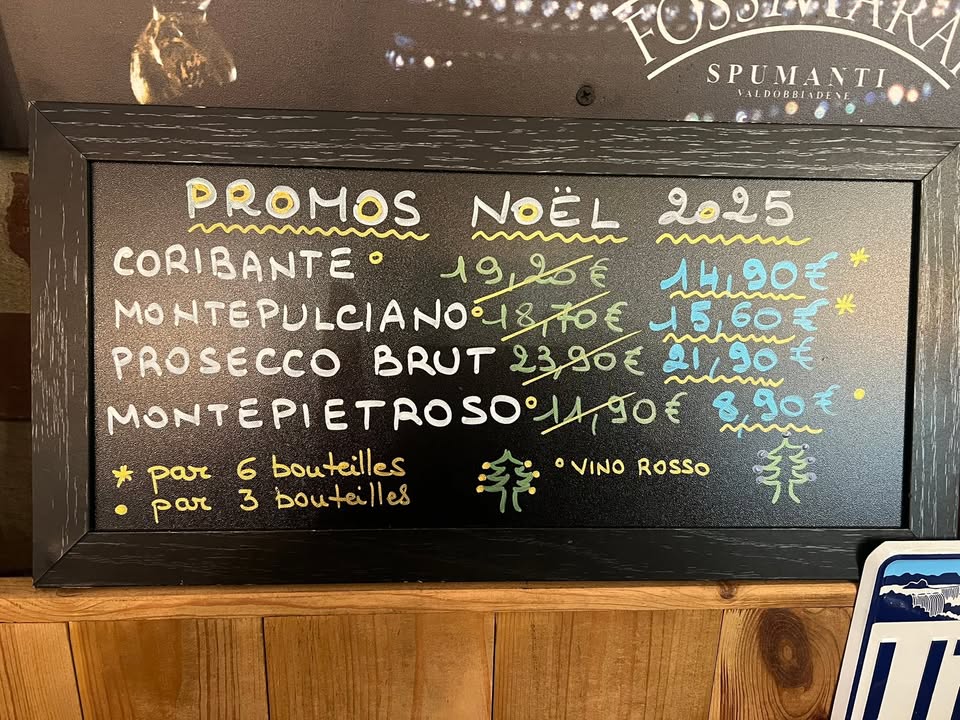 SPUMANTI
VALDOBBIADENE
PROMOS NOËL 2025
CORIBANTE° 19,20€ 14,90€ *
MONTEPULCIANO° 18,70€ 15,60€ *
PROSECCO BRUT 23,90€ 21,90€
MONTEPIETROSO° 11,90€ 8,90€ •
* par 6 bouteilles
• par 3 bouteilles
° VINO ROSSO